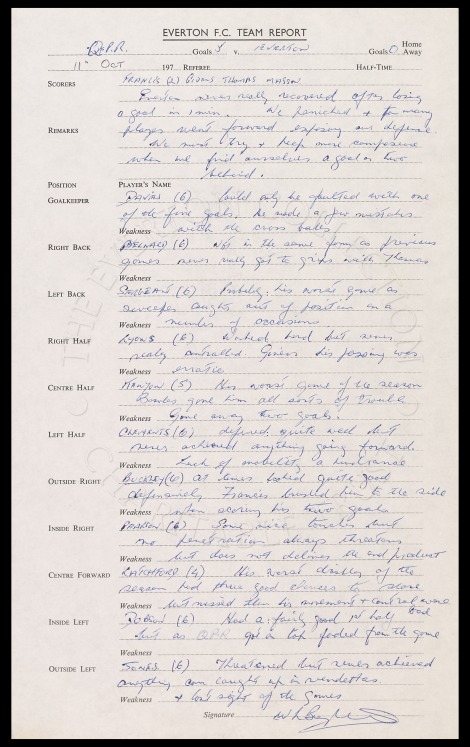 EVERTON F.C. TEAM REPORT
Q.P.R. Goals 5 v. EVERTON Goals 0 Home Away
11th OCT 197 REFEREE HALF-TIME
SCORERS FRANCIS (2) GIVENS THOMAS MASSON
Everton never really recovered after losing
a goal in 1 min. We panicked + too many
REMARKS players went forward exposing our defence.
We must try + keep more composure
when we find ourselves a goal or two
behind.
POSITION PLAYER'S NAME
GOALKEEPER DAVIES (6) Could only be faulted with one
of the five goals. He made a few mistakes
Weakness with the cross balls
RIGHT BACK BERNARD (6) Not in the same form as previous
games never really got to grips with Thomas
Weakness
LEFT BACK SERGEANT (6) Probably his worst game as
sweeper caught out of position on a
Weakness number of occasions
RIGHT HALF LYONS (6) Worked hard but never
really controlled Givens his passing was
Weakness erratic
CENTRE HALF KENYON (5) His worst game of the season
Bowles gave him all sorts of trouble
Weakness Gave away two goals.
LEFT HALF CLEMENTS (6) defended quite well but
never achieved anything going forward.
Weakness Lack of mobility a hindrance
OUTSIDE RIGHT BUCKLEY (6) at times looked quite good
defensively Francis brushed him to the side
Weakness when scoring his two goals
INSIDE RIGHT PEARSON (6) Some nice touches but
no penetration always threatens
Weakness but does not deliver the end product
CENTRE FORWARD LATCHFORD (4) His worst display of the
season had three good chances to score
Weakness but missed them his movement + control were
bad
INSIDE LEFT DOBSON (6) Had a fairly good 1st half
but as QPR got on top faded from the game
Weakness
OUTSIDE LEFT JONES (6) Threatened but never achieved
anything can caught up in vendettas
Weakness + lost sight of the games
Signature